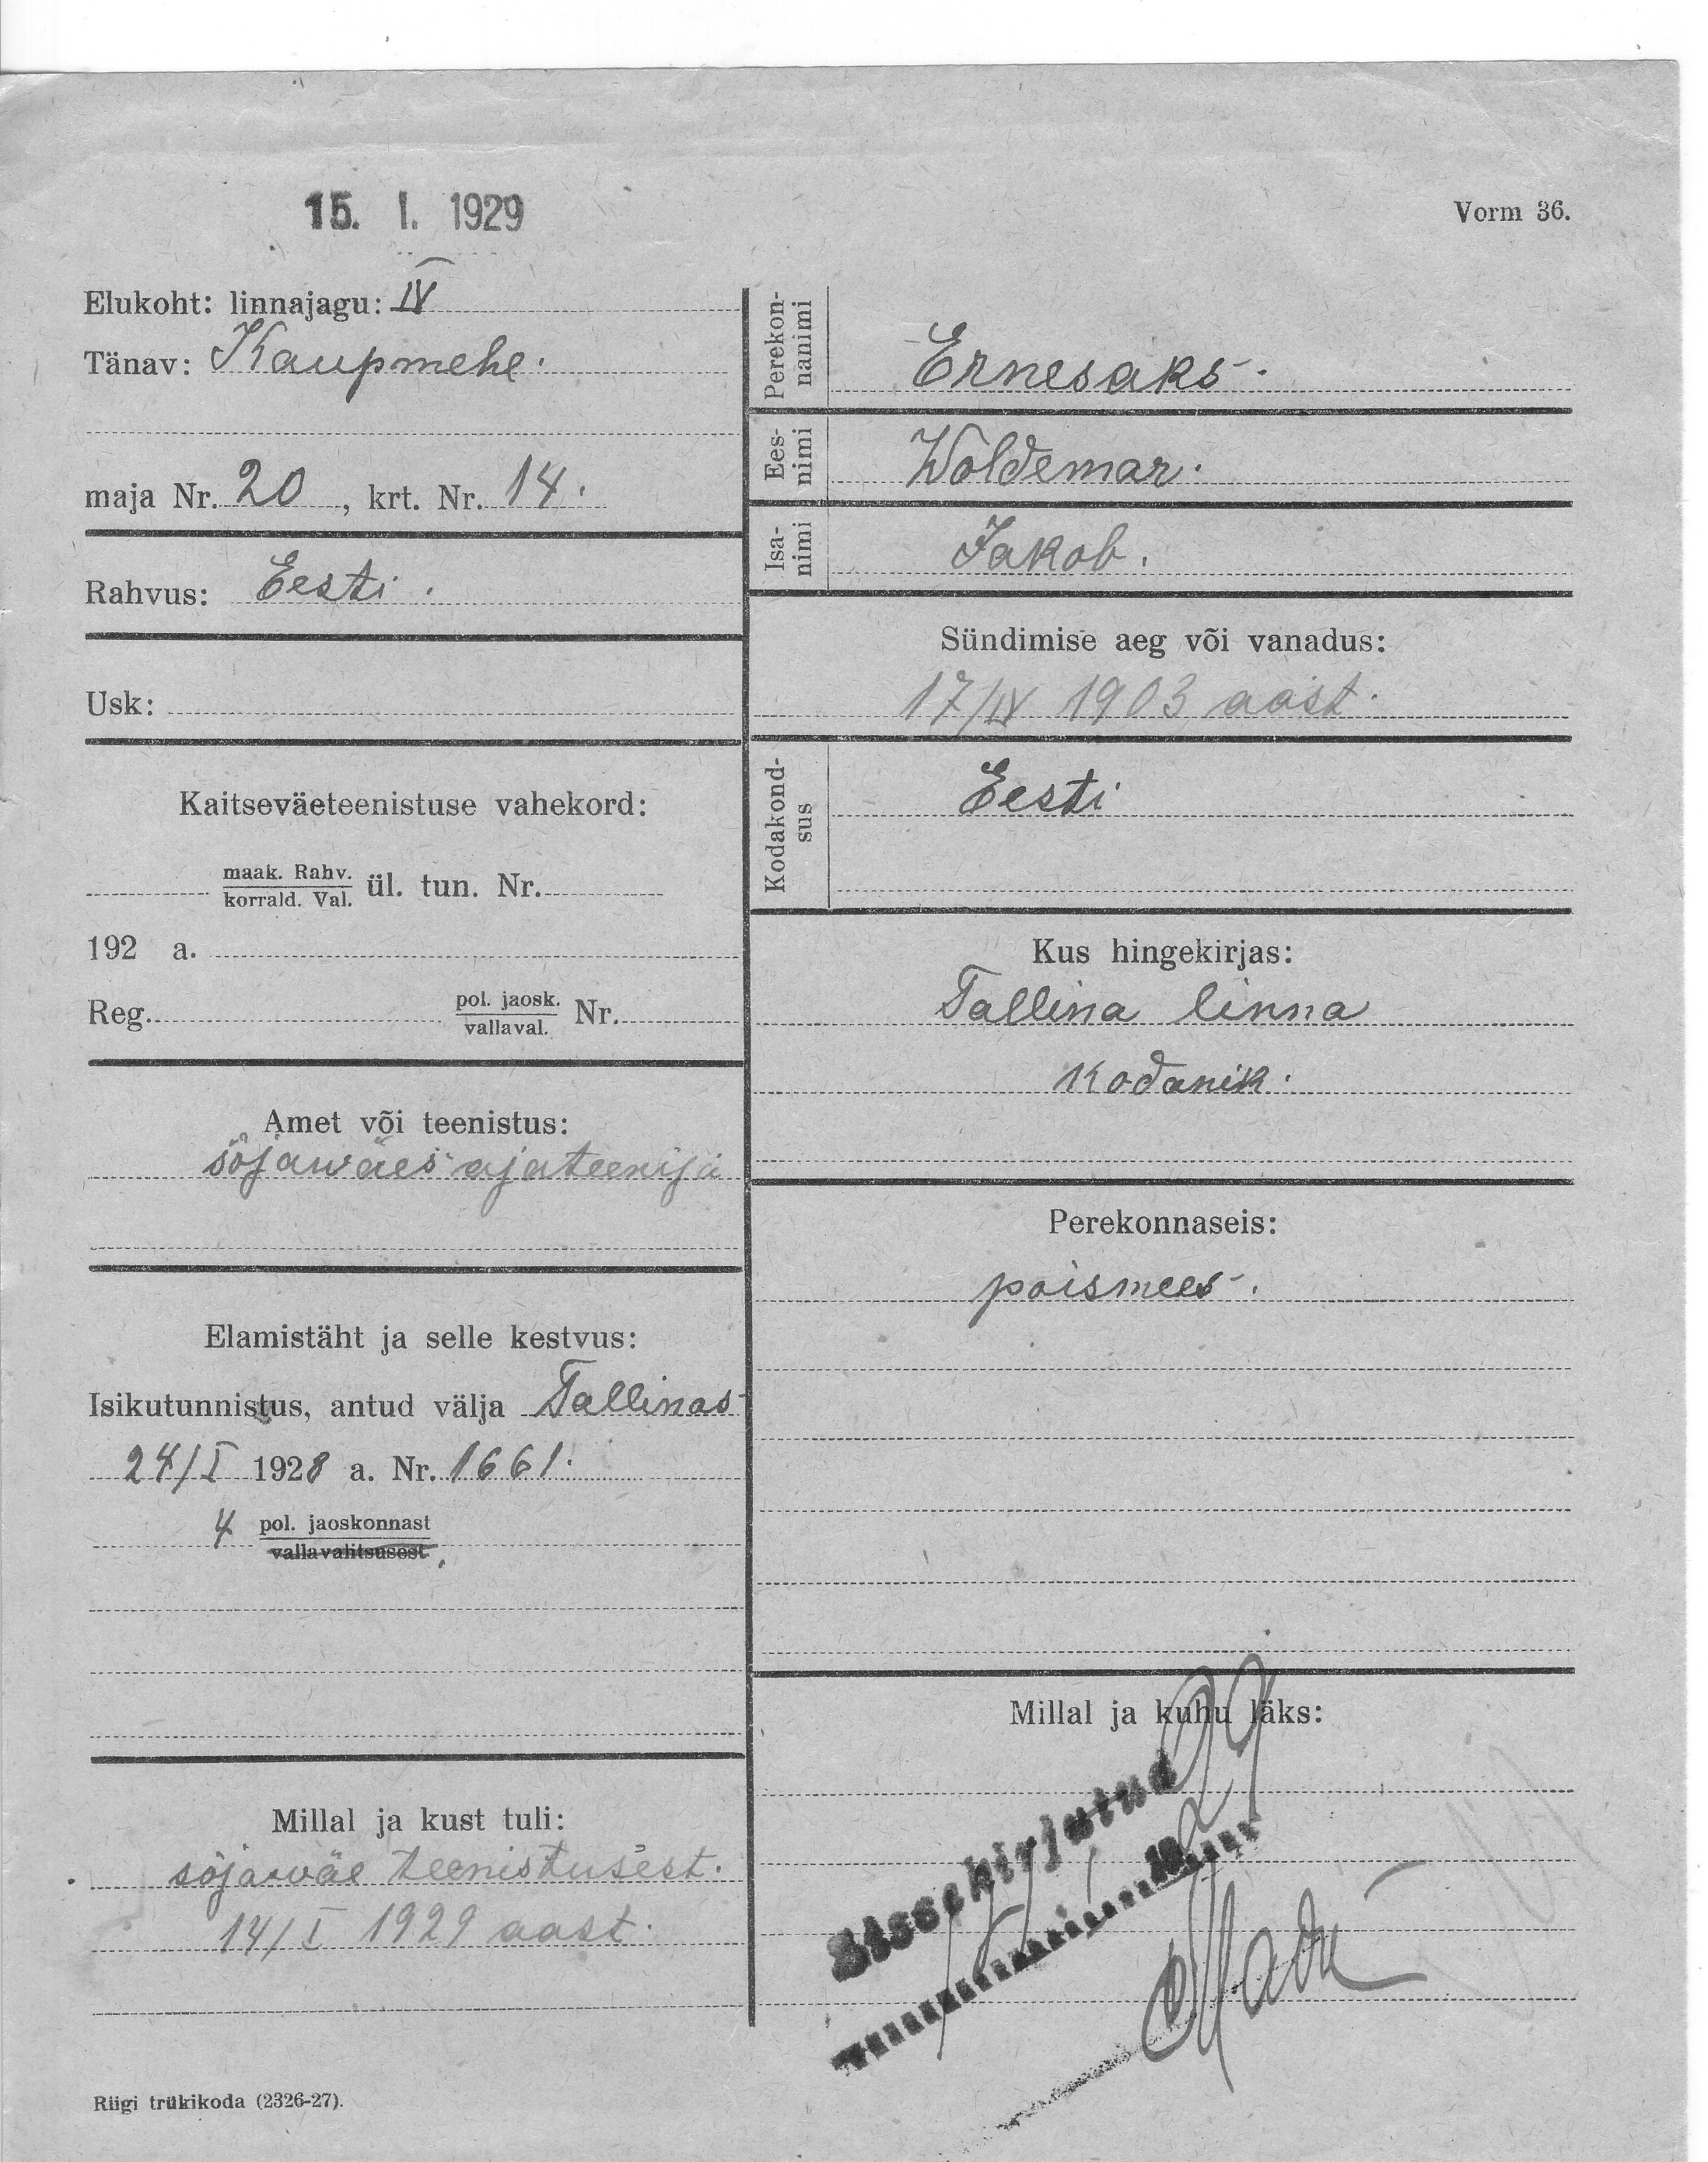 15. I. 1929
Vorm 36.
Elukoht: linnajagu: IV
Tänav: Kaupmehe.
maja Nr. 20, krt. Nr. 14.
Rahvus: Eesti.
Usk:
Kaitseväeteenistuse vahekord:
maak. Rahv.
korrald. Val.
ül. tun. Nr.
192 a.
Reg.
pol. jaosk.
vallaval.
Nr.
Amet või teenistus:
sõjawäes ajateenija
Elamistäht ja selle kestvus:
Isikutunnistus, antud välja Tallinas
24/I 1928 a. Nr. 1661.
4 pol. jaoskonnast
vallavalitsusest
Millal ja kust tuli:
sõjawäe teenistusest.
14/I 1929 aast.
Riigi trükikoda (2326-27).
Perekon-
nanimi
Ernesaks.
Ees-
nimi
Woldemar.
Isa-
nimi
Jakob.
Sündimise aeg või vanadus:
17/IX 1903 aast.
Kodakond-
sus
Eesti
Kus hingekirjas:
Tallina linna
kodanik.
Perekonnaseis:
poismees.
Millal ja kuhu läks:
Sissekirjutud
19 29